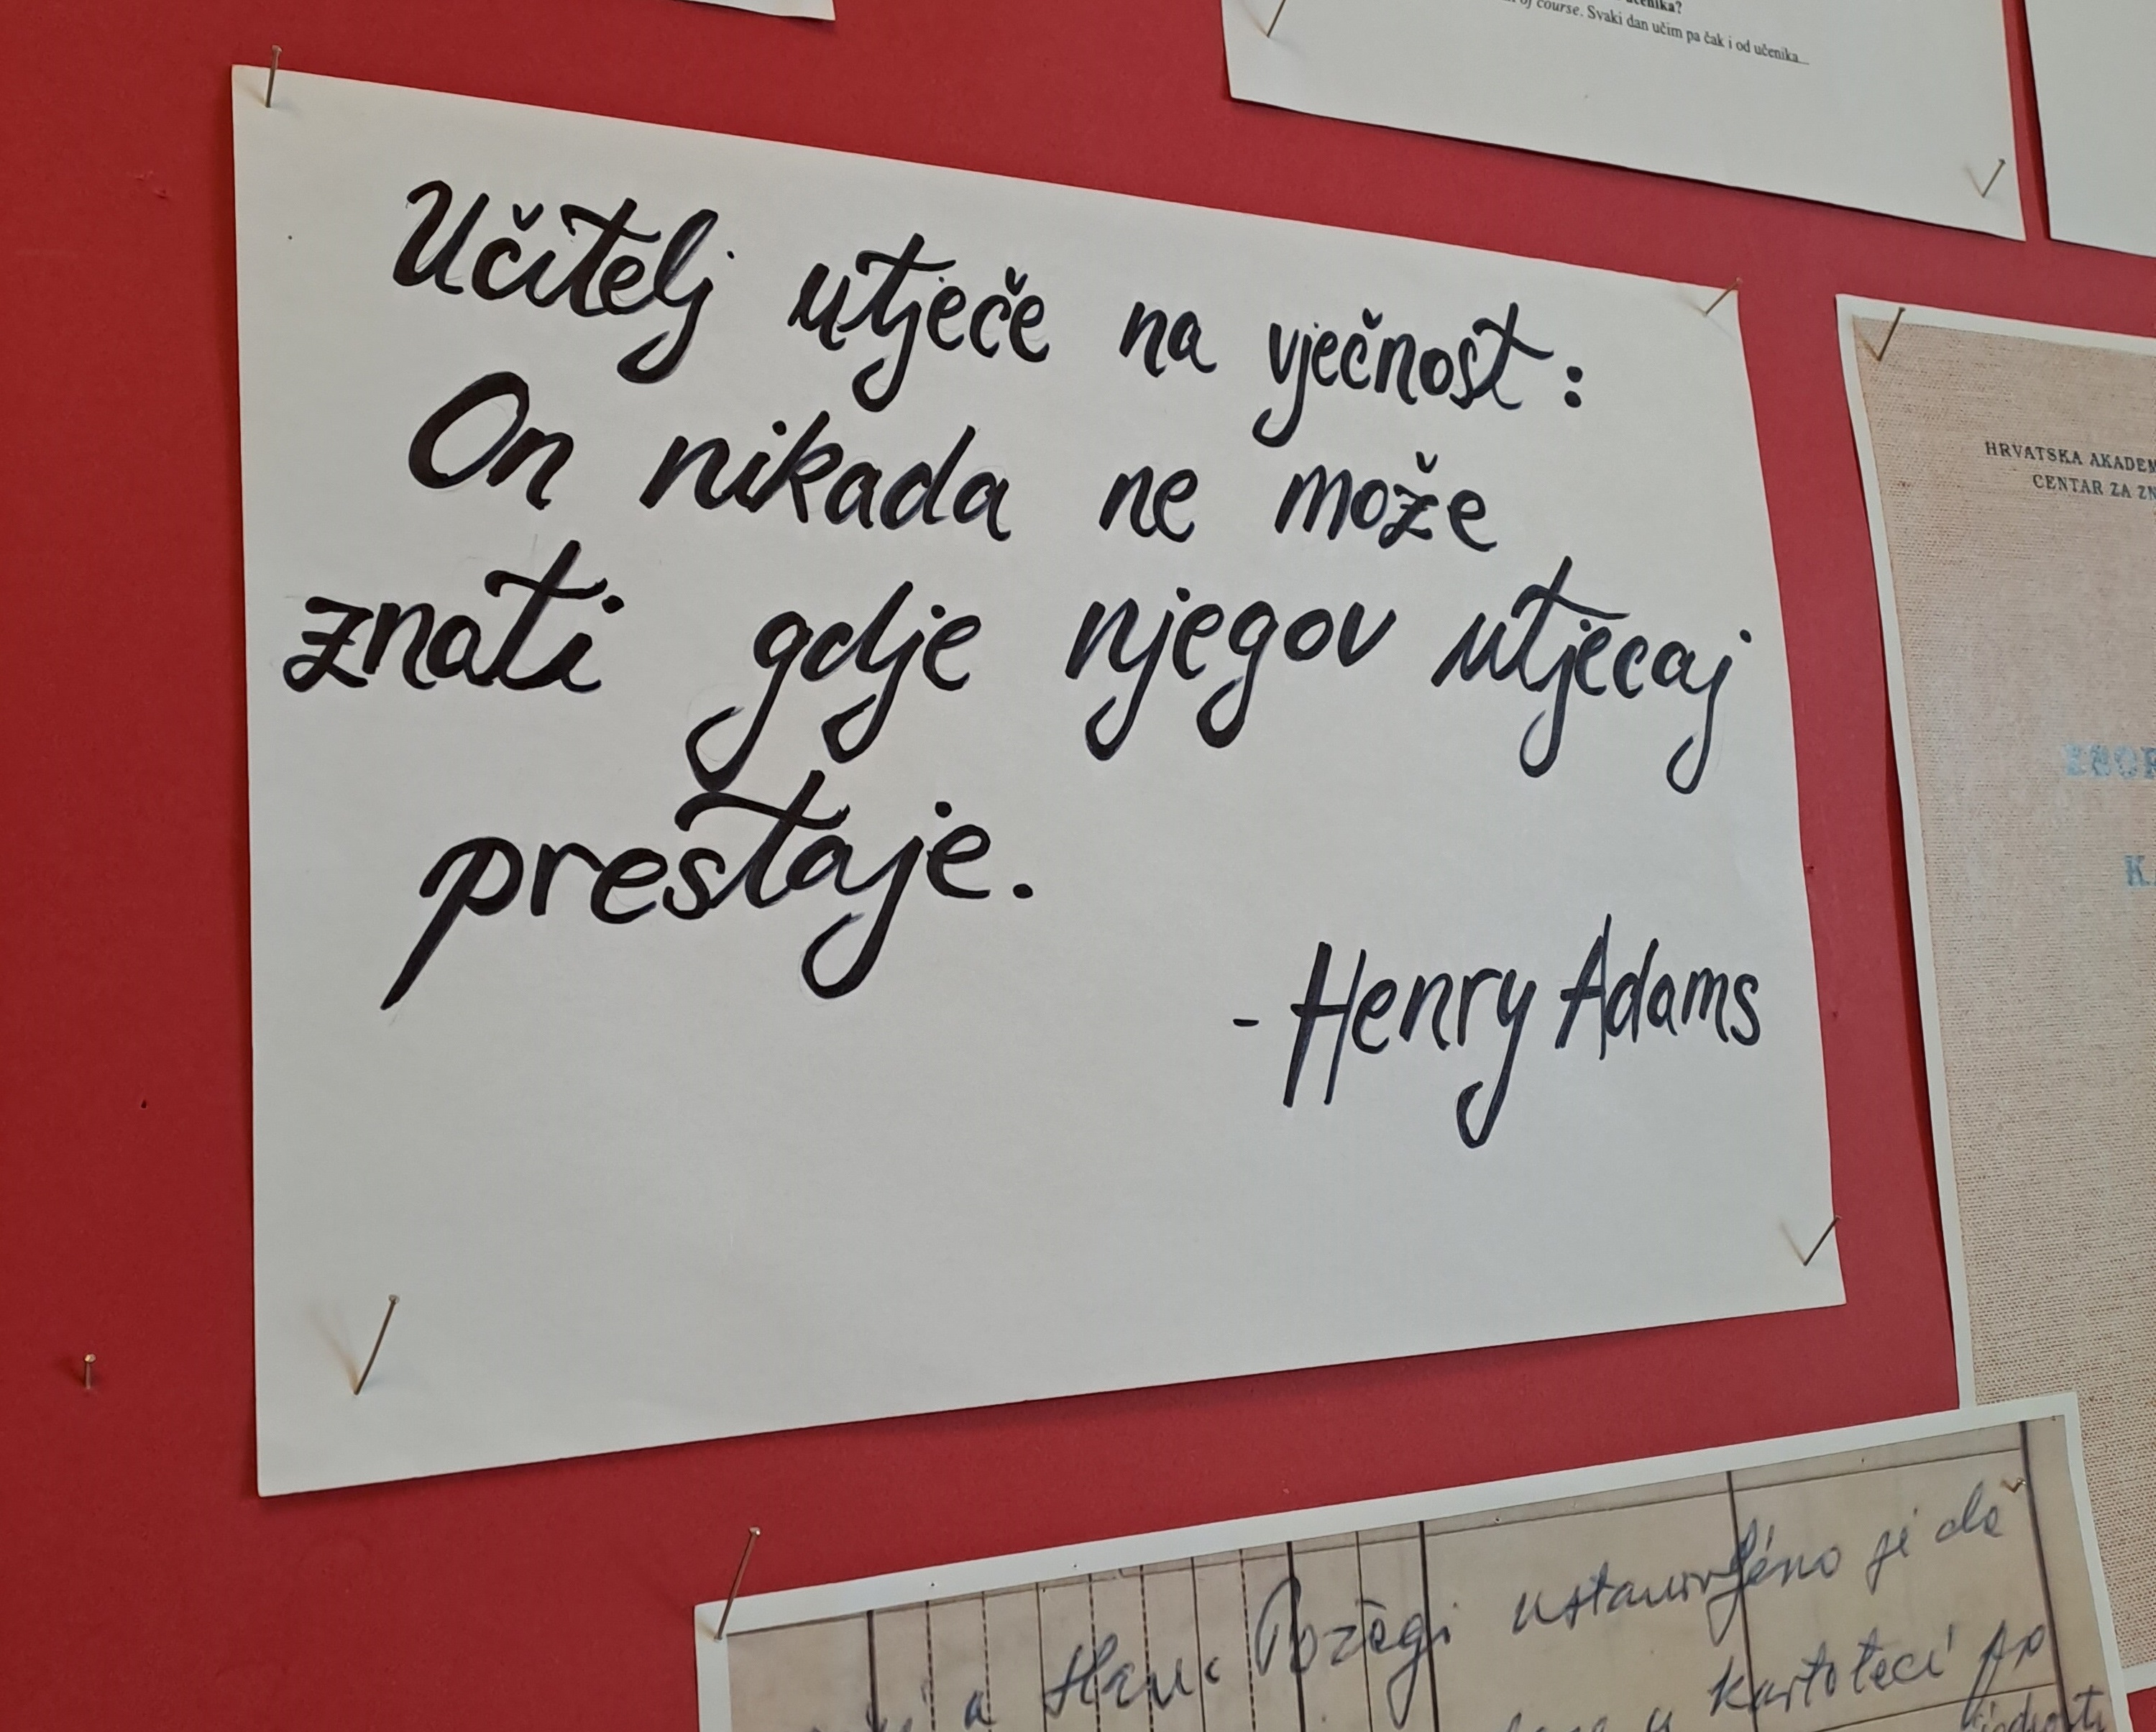 učenika?
of course. Svaki dan učim pa čak i od učenika...
Učitelj utječe na vječnost:
On nikada ne može
znati gdje njegov utjecaj
prestaje.
- Henry Adams
HRVATSKA AKADEM
CENTAR ZA ZN
ZBOR
K
Požegi ustanovljeno je da
a
u kartoteci po